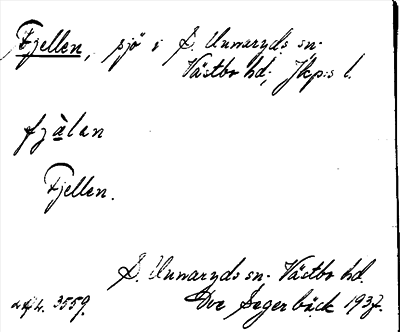 Fjellen, sjö i S. Unnaryds sn.
Västbo hd; Jkp:s l.
fjälan
Fjellen.
S. Unnaryds sn. Västbo hd.
3559. Segerbäck 1937.